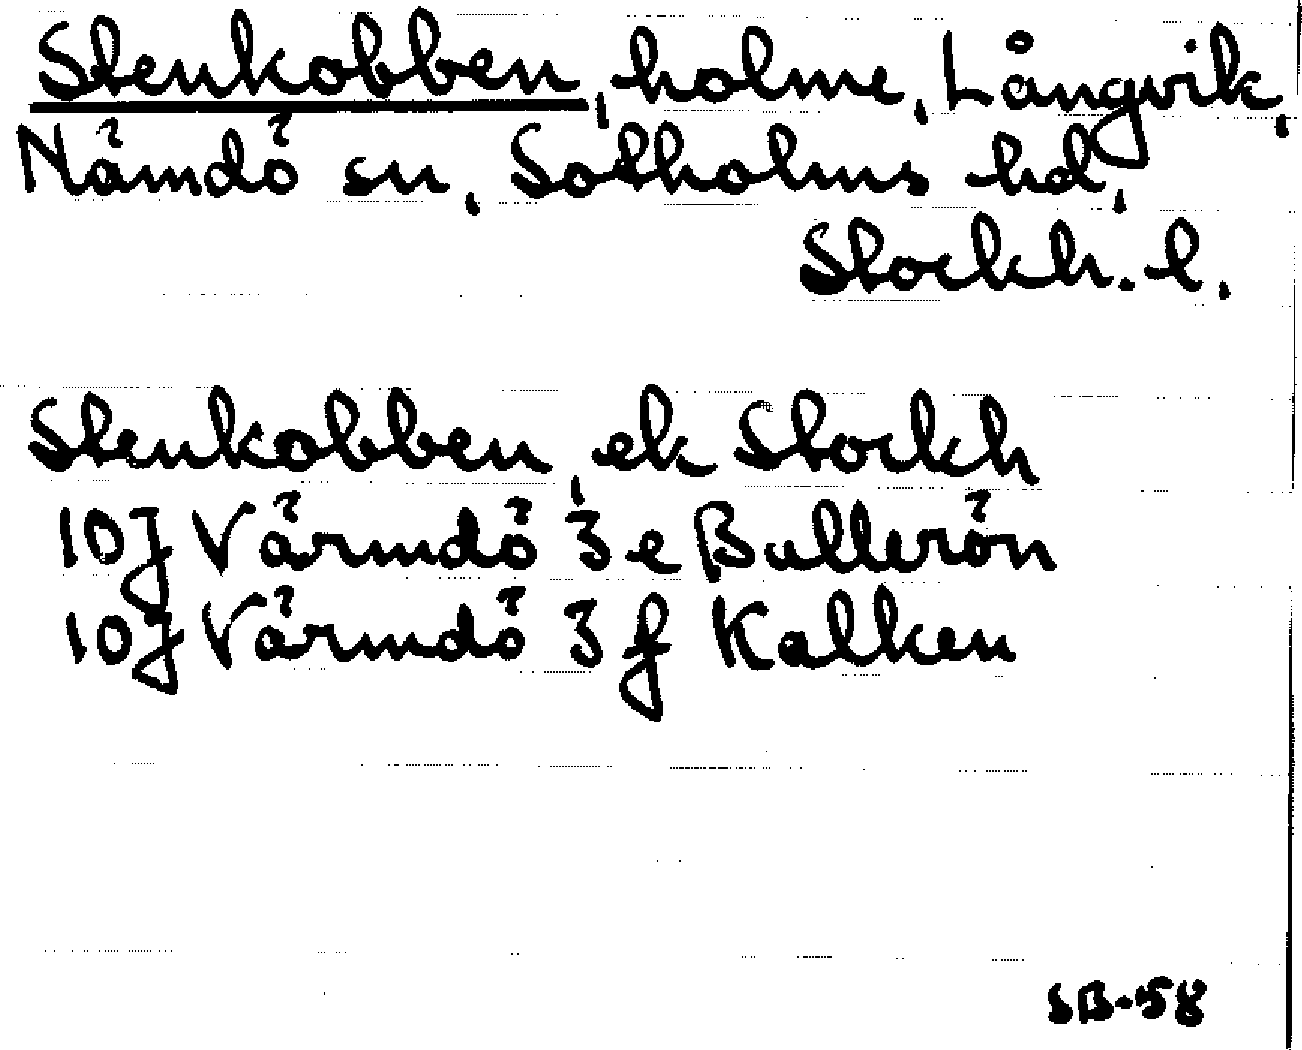 Stenkobben, holme, Långvik,
Nämdö sn, Sotholms hd,
Stockh. l.
Stenkobben, ek Stockh
10J Värmdö 3 e Bullerön
10J Värmdö 3 f Kalken
SB-58